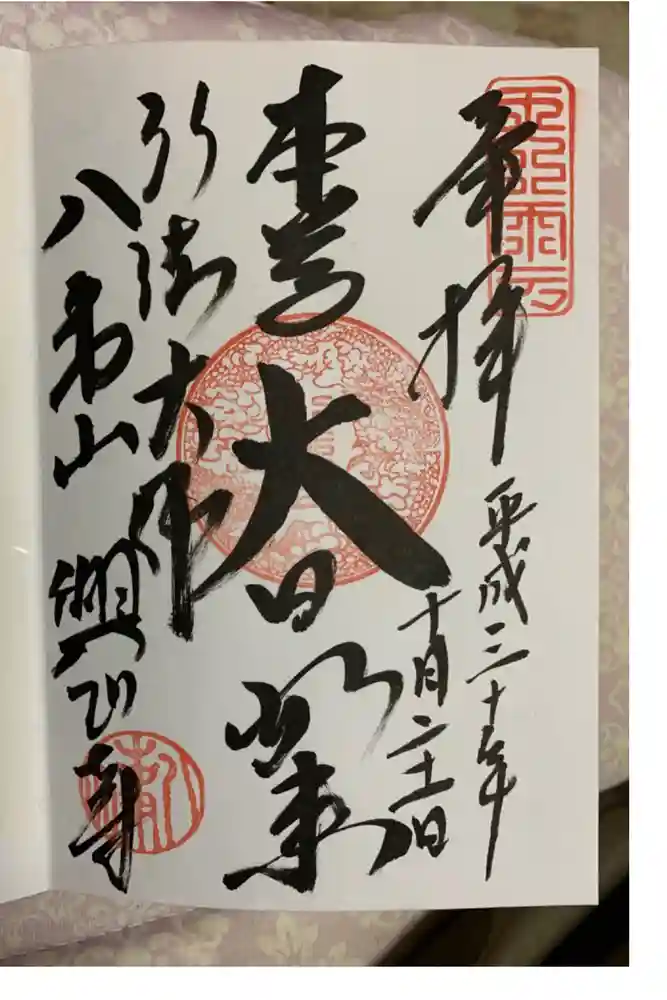 奉拝
平成三十年
十月二十一日
本尊
大日如来
弘法大師
八事山 興正寺